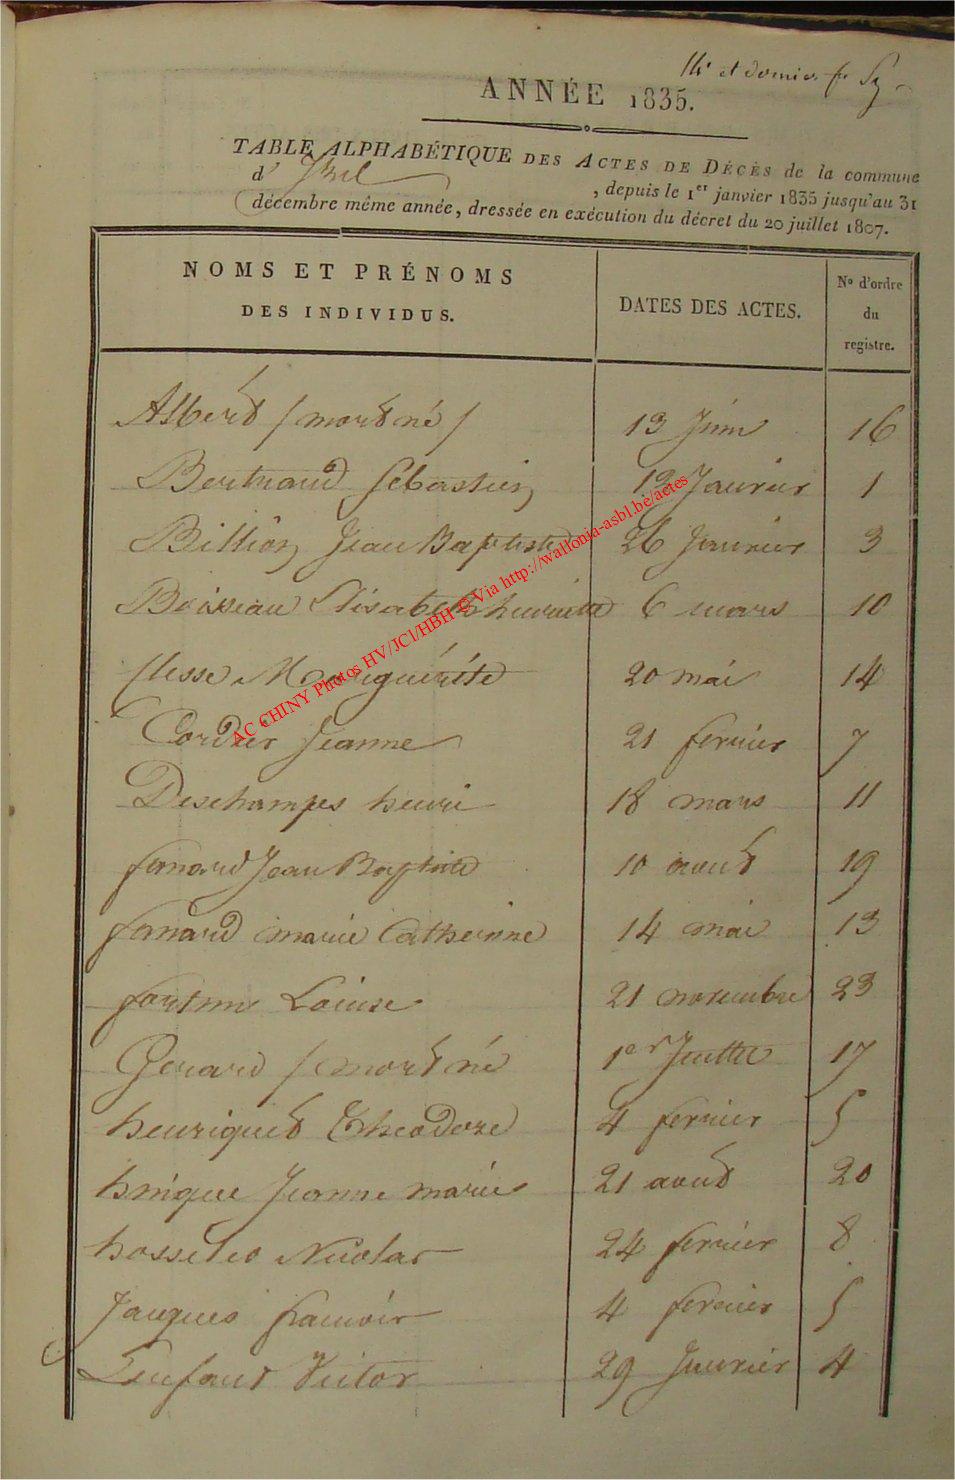 14e et dernier f
ANNÉE 1835.
TABLE ALPHABÉTIQUE DES ACTES DE DÉCÈS de la commune
d' Izel , depuis le 1er janvier 1835 jusqu'au 31
décembre même année, dressée en exécution du décret du 20 juillet 1807.
NOMS ET PRÉNOMS DES INDIVIDUS. DATES DES ACTES. No d'ordre du registre.
Albert / mort né / 13 Juin 16
Bertrand Sebastien 12 Janvier 1
Billion Jean Baptiste 26 Janvier 3
Boiseau Elisabeth henriette 6 mars 10
Clesse Marguérite 20 mai 14
Cordier Jeanne 21 fevrier 7
Deschamps henri 18 mars 11
fonard Jean Baptiste 10 aout 19
fanard marie Catherinne 14 mai 13
Louise 21 novembre 23
Gerard / mort né 1er Juillet 17
henriquet Théodore 4 fevrier 5
hinique Jeanne marie 21 aout 20
hosselet Nicolas 24 fevrier 8
Jacques francois 4 fevrier 5
Lenfant Victor 29 Janvier 4
AC CHINY Photos HV/JCl/HBH © Via http://wallonia-asbl.be/actes